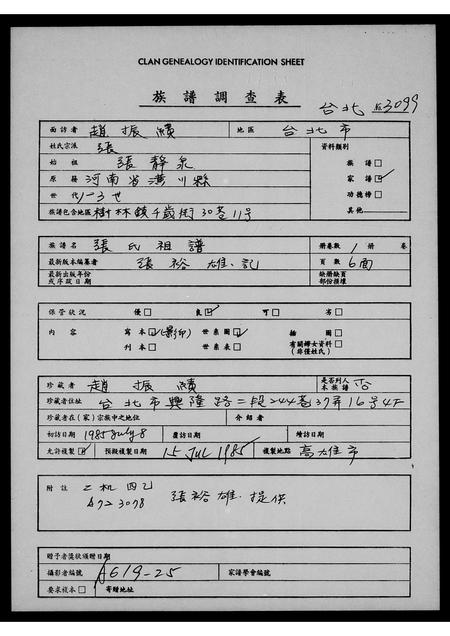 CLAN GENEALOGY IDENTIFICATION SHEET
族譜調查表
台北 3099
面訪者 趙振績 地區 台北市
姓氏宗派 張 資料類別
始祖 張靜泉 族譜□
原籍 河南省潢川縣 家譜☑
世代 1-3世 功德榜□
族譜包含地區 樹林鎮千歲街30巷11号 其他
族譜名 張氏祖譜 冊卷數 1 冊 卷
最新版本編纂者 張裕雄.記 頁數 6面
最新出版年份或序跋日期 缺冊缺頁部份損壞
保管狀況 優□ 良☑ 可□ 劣□
內容 寫本☑(影印) 世系圖☑ 插圖□
刊本□ 世系表□ 有關婦女資料□(非僅姓氏)
珍藏者 趙振績 是否列入本族譜 否
珍藏者住址 台北市興隆路二段244巷37弄16号4F
珍藏者在(家)宗族中之地位 介紹者
初訪日期 1985 July 8 覆訪日期 續訪日期
允許複製☑ 預擬複製日期 15 Jul 1985 複製地點 高雄市
附註 張裕雄.提供
3078
贈予者獎狀頒贈日期
攝影者編號 A619-25 家譜學會編號
要求複本□ 寄贈地址